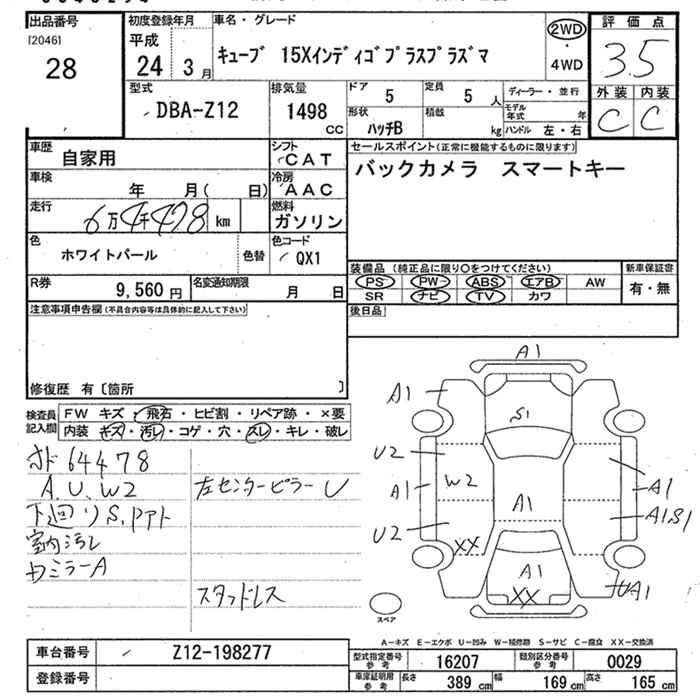 出品番号 初度登録年月 車名・グレード 2WD 評価点
[2046] 平成 3.5
28 24年 3月 キューブ 15Xインディゴプラスプラズマ ・4WD 外装 内装
型式 排気量 ドア 定員 ディーラー・並行 C C
DBA-Z12 1498 CC 5 5人 モデル年式 年
形状 積載 ハンドル 左・右
ハッチB kg
車歴 自家用 シフト CAT セールスポイント(正常に機能するものに限ります)
車検 年 月( 日) 冷房 AAC バックカメラ スマートキー
走行 6万4千478 km 燃料 ガソリン
色 ホワイトパール 色替 色コード QX1
装備品(純正品に限り○をつけてください) 新車保証書
R券 9,560円 名変通知期限 月 日 PS PW ABS エアB AW 有・無
SR ナビ TV カワ
注意事項申告欄(不具合内容等は具体的に記入して下さい) 後日品
修復歴 有〔箇所 〕
検査員記入欄 FW キズ・飛石・ヒビ割・リペア跡・×要
内装 キズ・汚レ・コゲ・穴・スレ・キレ・破レ
64478
A.U.W2 左センターピラーU
下回りS.
室内汚レ
ミラーA
スタッドレス
A1
A1
S1
U2
W2
A1 A1 A1
A1S1
U2
XX
A1
XX A1
スペア
A-キズ E-エクボ U-凹み W-補修跡 S-サビ C-腐食 XX-交換済
車台番号 Z12-198277 型式指定番号参考 16207 類別区分番号参考 0029
登録番号 車庫証明用参考 長さ 389cm 幅 169cm 高さ 165cm